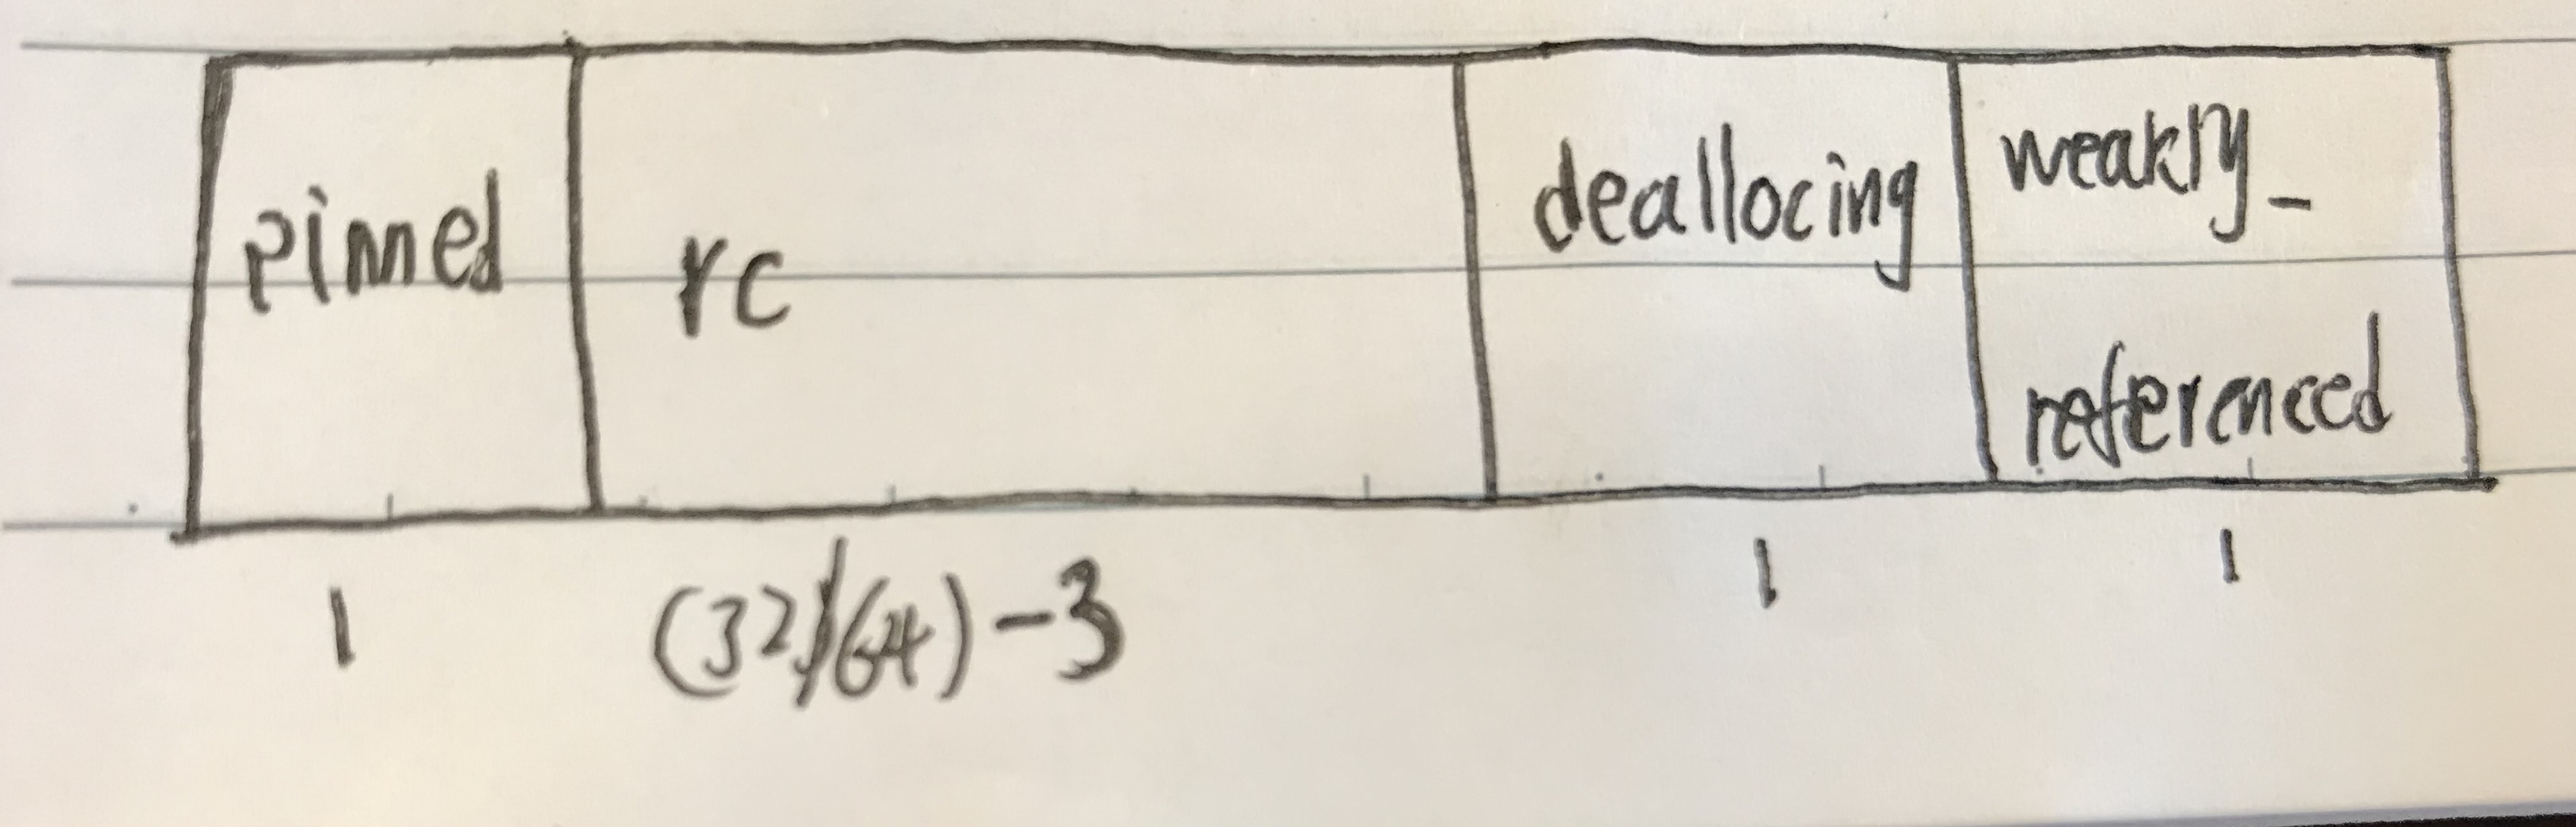 pinned
rc
deallocing
weakly_
referenced
1
(32/64)-3
1
1